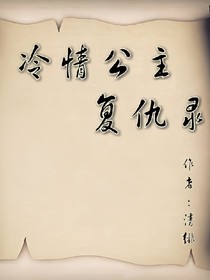 冷情公主
复仇录
作者：